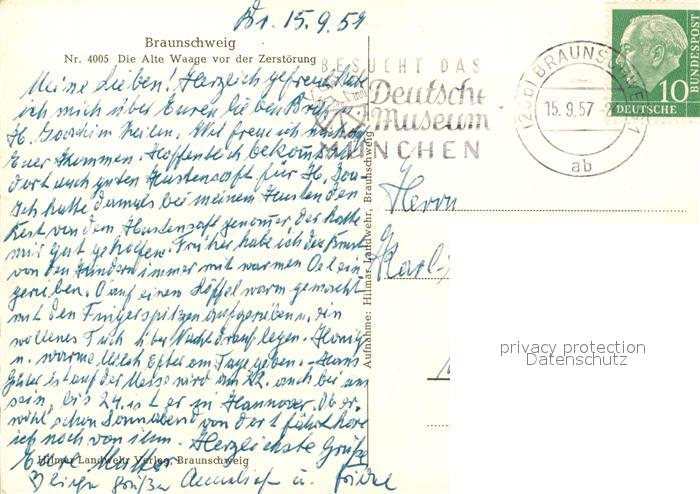 Br. 15.9.57
Braunschweig
Nr. 4005 Die Alte Waage vor der Zerstörung
Meine Lieben! Herzlich gefreut habe
ich mich über Euren lieben Brief
H. Joachim Zeilen. Wie freue ich mich
Euer Kommen. Hoffentlich bekommt
dort auch guten Hustensaft für H. Joa.
Ich hatte damals bei meinem Husten den
Rest von dem Hustensaft genommen, der hatte
mir gut geholfen. Früher habe ich die Brust
von den Kindern immer mit warmen Oel ein
gerieben. Oel auf einen Löffel warm gemacht
mit den Fingerspitzen aufgerieben u. ein
wollenes Tuch über Nacht drauf legen. Honig
u. warme Milch öfter am Tage geben. Hans
ist auf der Messe wird am 22. auch bei uns
sein, bis 24. ist er in Hannover. Ob er
wohl schon Sonnabend von dort fährt höre
ich noch von ihm. Herzlichste Grüße
Eure
Hilmar Landwehr Verlag, Braunschweig
Liebe Grüße u.
Aufnahme: Hilmar Landwehr, Braunschweig
BESUCHT DAS
Deutsche
Museum
MÜNCHEN
BRAUNSCHWEIG
15.9.57
ab
10
DEUTSCHE
BUNDESPOST
Herrn
Karl-
privacy protection
Datenschutz